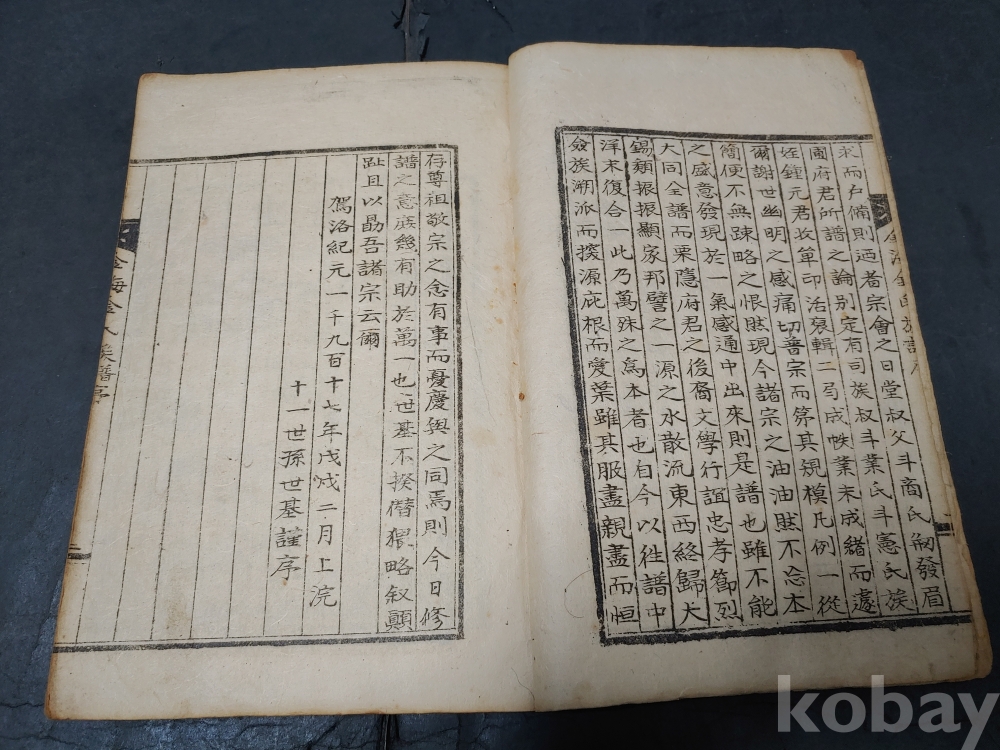 求而戶備則迺者宗會之日堂叔父斗商氏刱發眉
圖府君所譜之論別定有司族叔斗業氏斗憲氏族
姪鍾元君攷筆印活裒輯二芶成帙業未成緒而遽
爾謝世幽明之感痛切普宗而第其規模凡例一從
簡便不無踈略之恨然現今諸宗之油油然不忘本
之盛意發現於一氣感通中出來則是譜也雖不能
大同全譜而栗隱府君之後裔文學行誼忠孝節烈
錫類振振顯家邦譬之一源之水散流東西終歸大
洋末復合一此乃萬殊之爲本者也自今以徃譜中
僉族溯派而 源庇根而愛葉雖其服盡親盡而恒
存尊祖敬宗之念有事而憂慶與之同焉則今日修
譜之意庶幾有助於萬一也世基不揆僭猥略叙顚
趾且以勗吾諸宗云爾
駕洛紀元一千九百十七年戊戌二月上浣
十一世孫世基謹序
金海金氏族譜序
kobay